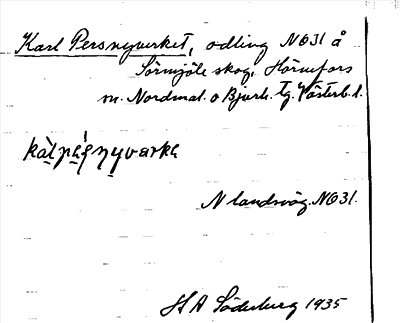 Karl Persnyverket, odling N631 å
Sörmjöle skog, Hörnefors
m. Nordmal. o Bjurh. tg. Västerb. l.
N landsväg. N631.
H A Söderberg 1935